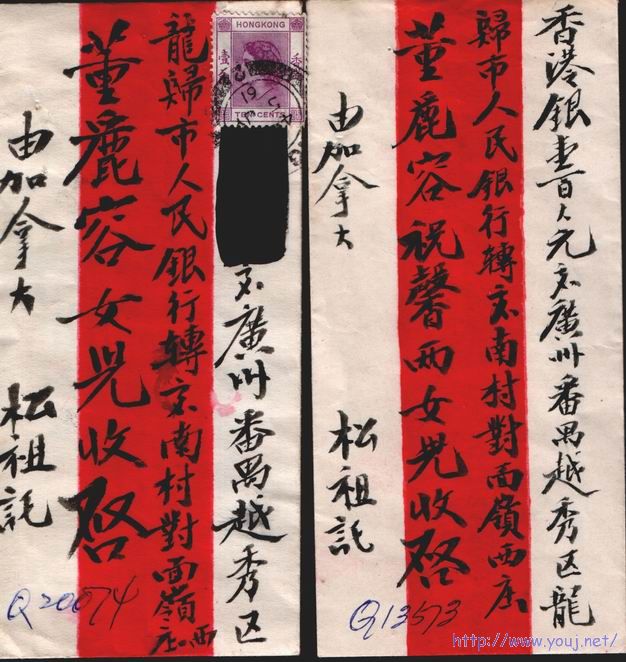 HONGKONG
TEN CENTS
交廣州番禺越秀区
龍歸市人民銀行轉交南村對面嶺西庄
董麗容女兒收啓
由加拿大 松祖託
Q20074
香港銀壹百元交廣州番禺越秀区龍
歸市人民銀行轉交南村對面嶺西庄
董麗容祝馨兩女兒收啓
由加拿大 松祖託
Q13573
http://www.youj.net/